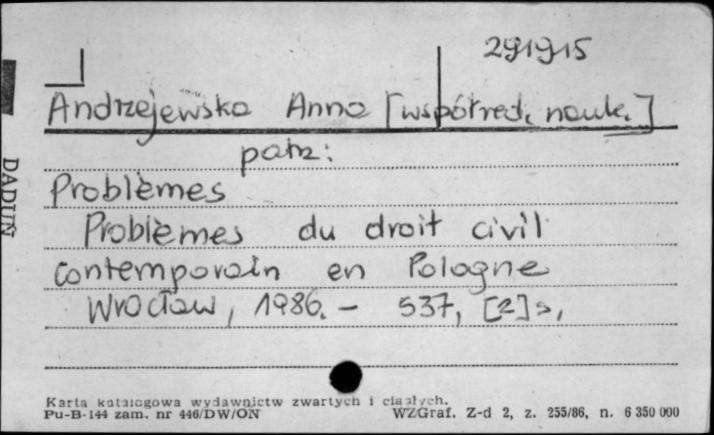 291915
Andrzejewska Anna [współred. nauk.]
patrz:
Problèmes
Problèmes du droit civil
contemporain en Pologne
Wrocław, 1986. – 537, [2] s,
DADUŃ
Karta katalogowa wydawnictw zwartych i ciągłych.
Pu-B-144 zam. nr 446/DW/ON WZGraf. Z-d 2, z. 255/86, n. 6 350 000